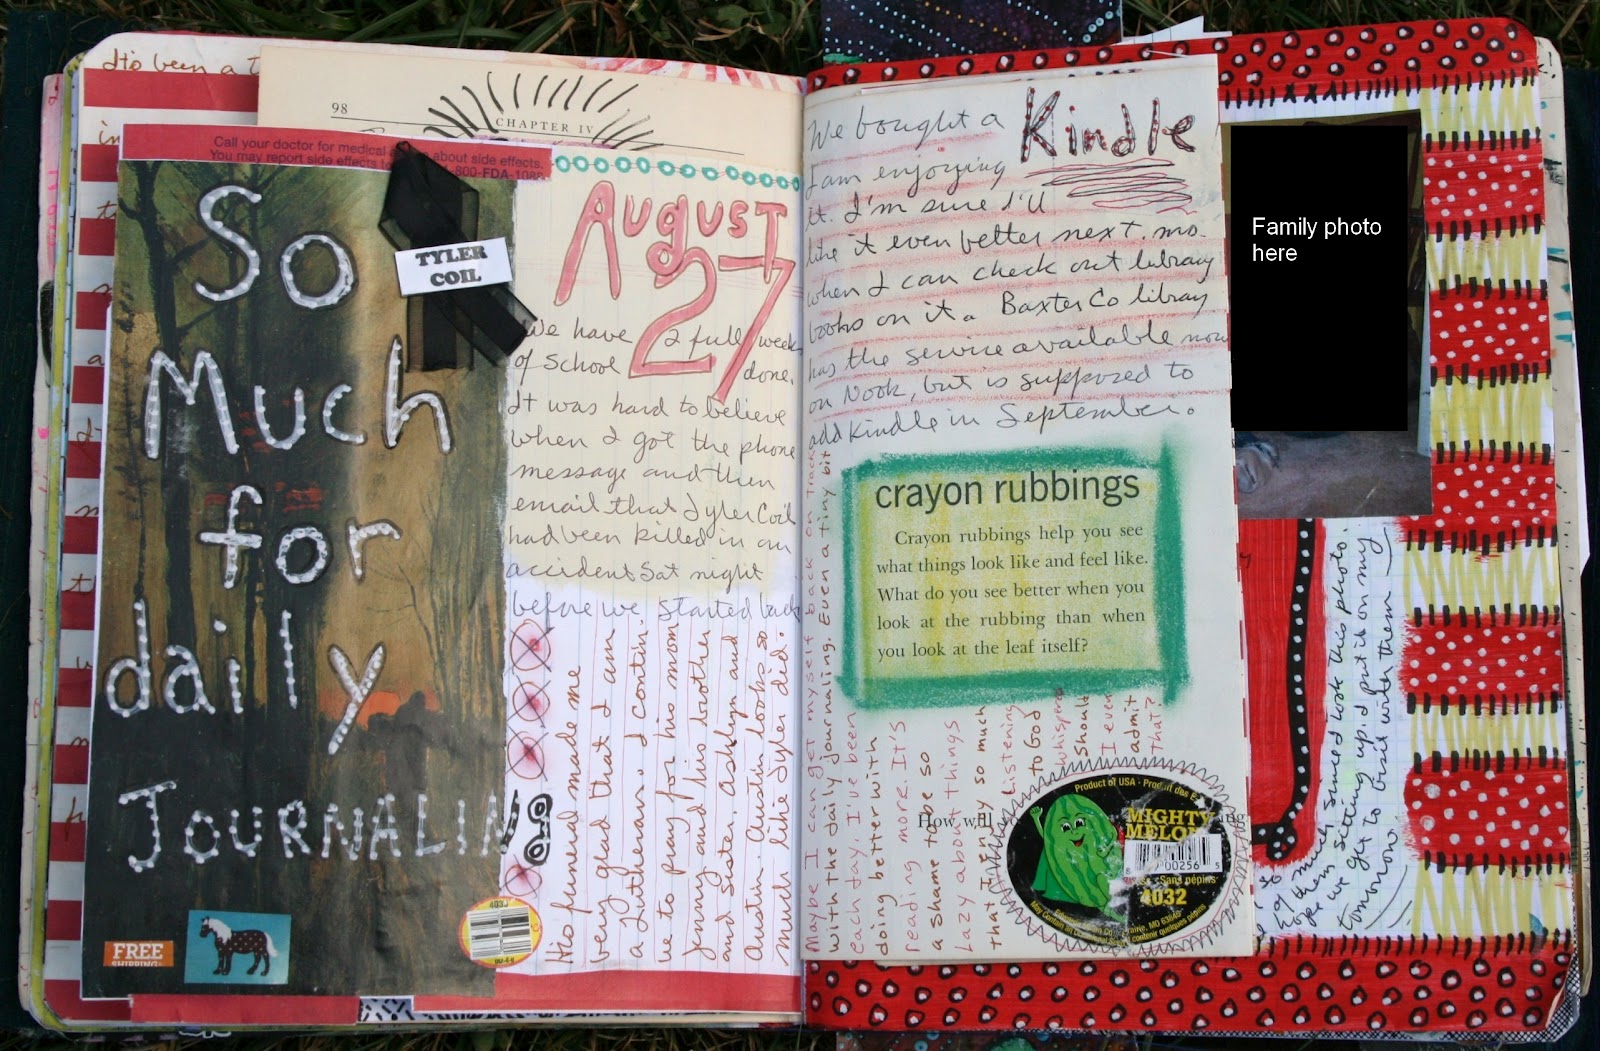 It's been a t
in
98
CHAPTER IV
Call your doctor for medical a about side effects.
You may report side effects to -800-FDA-1088
So
Much
for
daily
JOURNALIN
TYLER
COIL
FREE
SHIPPING
August
27
We have 2 full weeks
of school done.
It was hard to believe
when I got the phone
message and then
email that Tyler Coil
had been killed in an
accident Sat night
before we started back
His funeral made me
very glad that I am
a Lutheran. I contin-
ue to pray for his mom
Jenny and his brother
and sister, Ashlyn and
Austin. Austin looks so
much like Tyler did.
4032
We bought a
Kindle
I am enjoying
it. I'm sure I'll
like it even better next mo.
when I can check out library
books on it. Baxter Co library
has the service available now
on Nook, but is supposed to
add Kindle in September.
crayon rubbings
Crayon rubbings help you see
what things look like and feel like.
What do you see better when you
look at the rubbing than when
you look at the leaf itself?
Maybe I can get myself back on track
with the daily journaling. Even a tiny bit
each day. I've been
doing better with
reading more. It's
a shame to be so
lazy about things
that I enjoy so much
Listening
to God
whispers
Should
I even
admit
that?
How will
ng
Product of USA - Produit des É
MIGHTY
MELO
00256 5
Sans pépins
4032
Family photo
here
much since I took this photo.
of them sitting up. I put it on my
we get to visit with them
tomorrow.